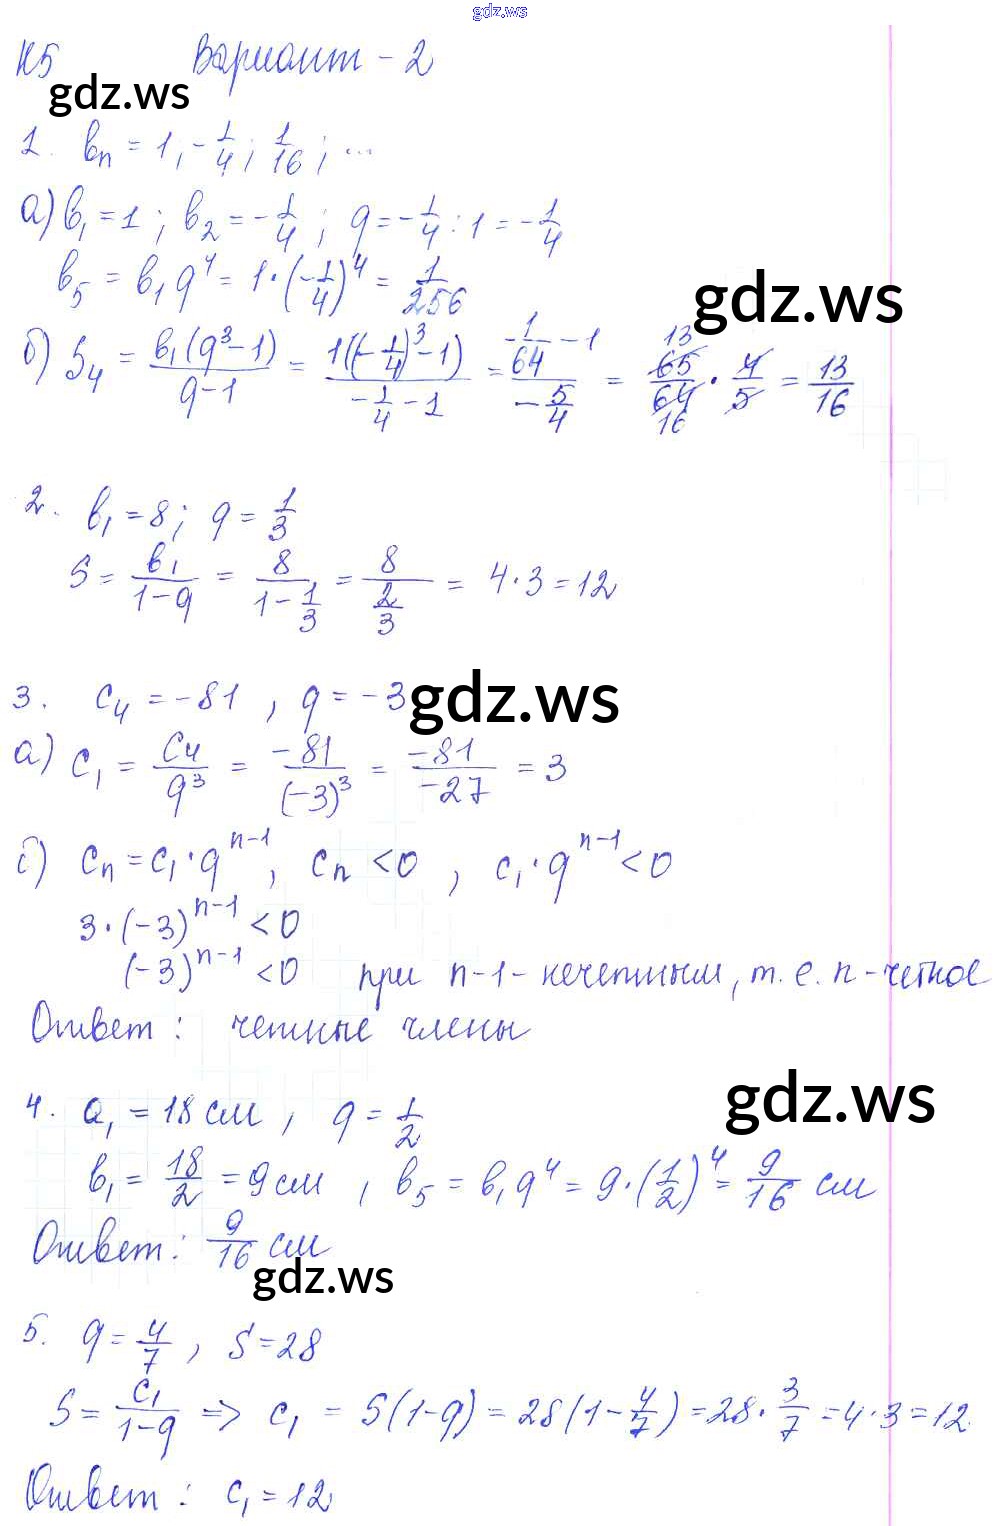 gdz.ws
К5 Вариант - 2
gdz.ws
1. bₙ = 1, -1/4; 1/16; ...
а) b₁ = 1; b₂ = -1/4; q = -1/4 : 1 = -1/4
b₅ = b₁q⁴ = 1·(-1/4)⁴ = 1/256
gdz.ws
б) S₄ = b₁(q³-1)/(q-1) = 1((-1/4)³-1)/(-1/4-1) = (-1/64-1)/(-5/4) = 13 65/64 16 · 4/5 = 13/16
2. b₁ = 8; q = 1/3
S = b₁/(1-q) = 8/(1-1/3) = 8/(2/3) = 4·3 = 12
3. c₄ = -81, q = -3
gdz.ws
а) c₁ = c₄/q³ = -81/(-3)³ = -81/-27 = 3
б) cₙ = c₁·qⁿ⁻¹, cₙ < 0, c₁·qⁿ⁻¹ < 0
3·(-3)ⁿ⁻¹ < 0
(-3)ⁿ⁻¹ < 0 при n-1 - нечетным, т.е. n - четное
Ответ: четные члены
gdz.ws
4. a₁ = 18 см, q = 1/2
b₁ = 18/2 = 9 см, b₅ = b₁q⁴ = 9·(1/2)⁴ = 9/16 см
Ответ: 9/16 см
gdz.ws
5. q = 4/7, S = 28
S = c₁/(1-q) => c₁ = S(1-q) = 28(1-4/7) = 28·3/7 = 4·3 = 12.
Ответ: c₁ = 12